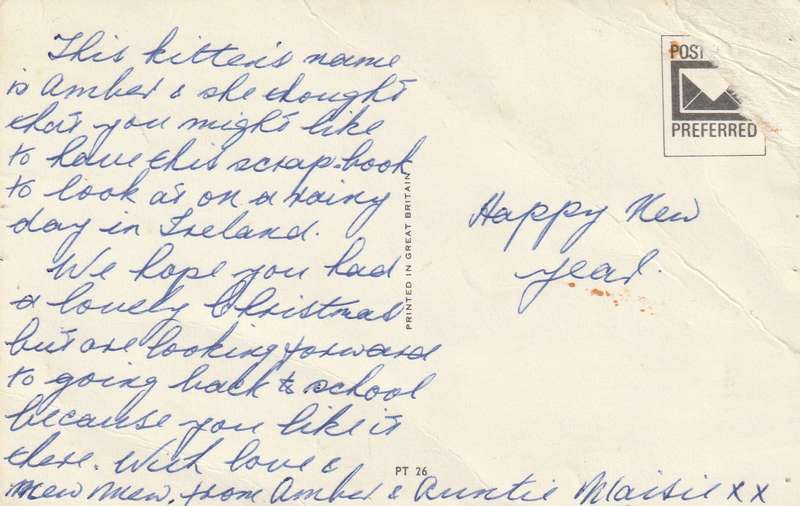 This kitten's name
is Amber & she thought
that you might like
to have this scrap-book
to look at on a rainy
day in Ireland.
We hope you had
a lovely Christmas
but are looking forward
to going back to school
because you like it
there. With love &
mew mew. from Amber & Auntie Maisie x x
PRINTED IN GREAT BRITAIN
PT 26
POST
PREFERRED
Happy New
year.